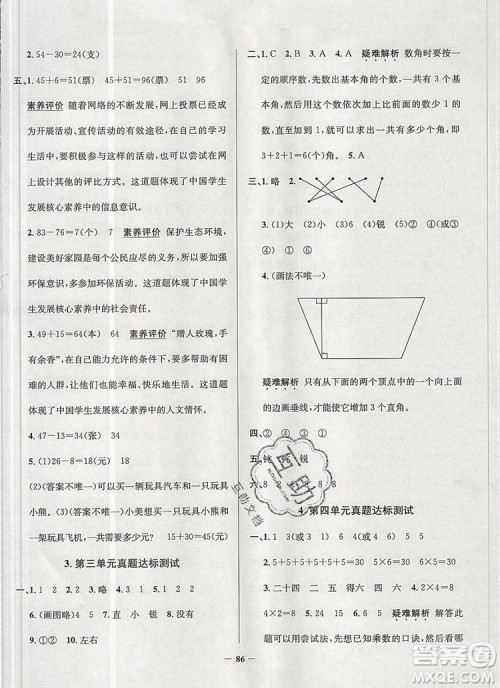 2. 54－30＝24(支)
五、1. 45＋6＝51(票)　45＋51＝96(票)　51　96
素养评价　随着网络的不断发展，网上投票已
成为开展活动、宣传活动的有效途径，在自己的学习
生活中，要积极参与这样的活动，也可以尝试在网
上设计其他的评比方式。这道题体现了中国学生
发展核心素养中的信息意识。
2. 83－76＝7(只)　7　素养评价　保护生态环境，
建设美好家园是每个公民应尽的义务，我们要加强
环保意识，多参加环保活动。这道题体现了中国学
生发展核心素养中的社会责任。
3. 49＋15＝64(本)　64　素养评价　“赠人玫瑰，手
有余香”，在能力允许的条件下，要帮助那些有困
难的人，让他们感受社会的温暖。这道题体现了
中国学生发展核心素养中的人文情怀。
4. 47－13＝34(张)　34
5. (1)26－8＝18(元)　18
(2)(答案不唯一)可以买一辆玩具汽车和一只
玩具小熊。　(3)(答案不唯一)小美想买一只小熊和
一架玩具飞机，一共需要多少元？　15＋30＝45(元)
3. 第三单元真题达标测试
一、1. 1　2　2. 略　3. 1　2　4. 直　5. 锐　钝
6. (画图略)　直　7. 2　1　8. 4　2　3　1
9. ①②　10. 左右
二、1. C　2. B　3. A　4. A　疑难解析　数角时以一
定的顺序数，先数出基本角的个数，一共有 3 个基
本角，然后用这个数依次加比前面的数少 1 的数，
直到加到 1 为止，和是几就有几个角，即
3＋2＋1＝6(个)。 5. A
三、1. 略　2.
3. (1)大　(2)小　(3)④　(4)锐　(5)②　④①(或①
④)　③
4. (画法不唯一)
疑难解析　只有从下面的两个顶点中的一个向上面
的边画垂线，才能画出 3 个直角。
四、②　①　③　④
五、钝　钝　锐
六、8　8　8
4. 第四单元真题达标测试
一、1. 6　3　6　3　(或 3　6)
2. 5＋5＋5＋5＋5＋5＝30　5×6＝30　6×5＝30
3. 二十四　四　二　五　五　4. 6　30　30
5. 3　2　4　5　3　6　疑难解析　解答此类题
可以用尝试法，先根据已知乘数的口诀，依次
86
互助
互助文档
答案圈
MXQE.COM